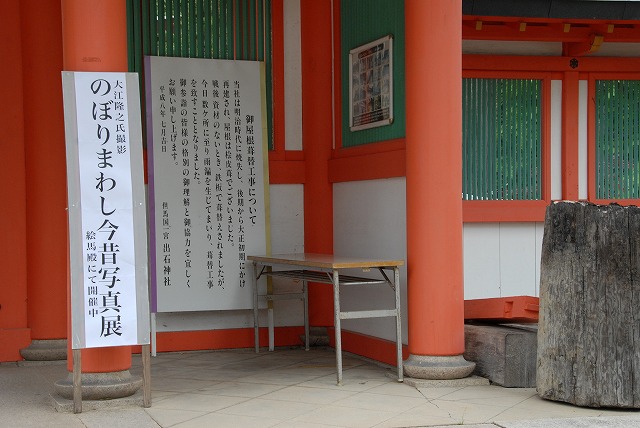 大江隆之氏撮影
のぼりまわし今昔写真展
絵馬殿にて開催中
御屋根葺替工事について
当社は明治時代に焼失し、後期から大正初期にかけ
再建され、屋根は桧皮葺でございました。
戦後資材のないとき、鉄板で葺替えされましたが、
今日数ケ所に至り雨漏を生じてまいり、葺替工事
を致すこととなりました。
御参詣の皆様の格別の御理解と御協力を宜しく
お願い申し上げます。
平成八年七月吉日
但馬国一宮 出石神社